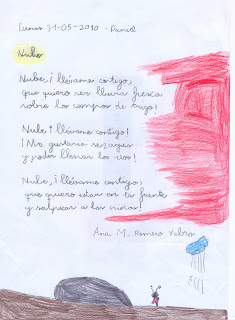 Lunes 31-05-2010 - David
Nube
Nube, ¡llévame contigo,
que quiero ser lluvia fresca
sobre los campos de trigo!
Nube ¡llévame contigo!
¡Me gustaría ser agua
y poder llenar los ríos!
Nube, ¡llévame contigo,
que quiero estar en la fuente
y salpicar a los niños!
Ana M. Romero Yebra